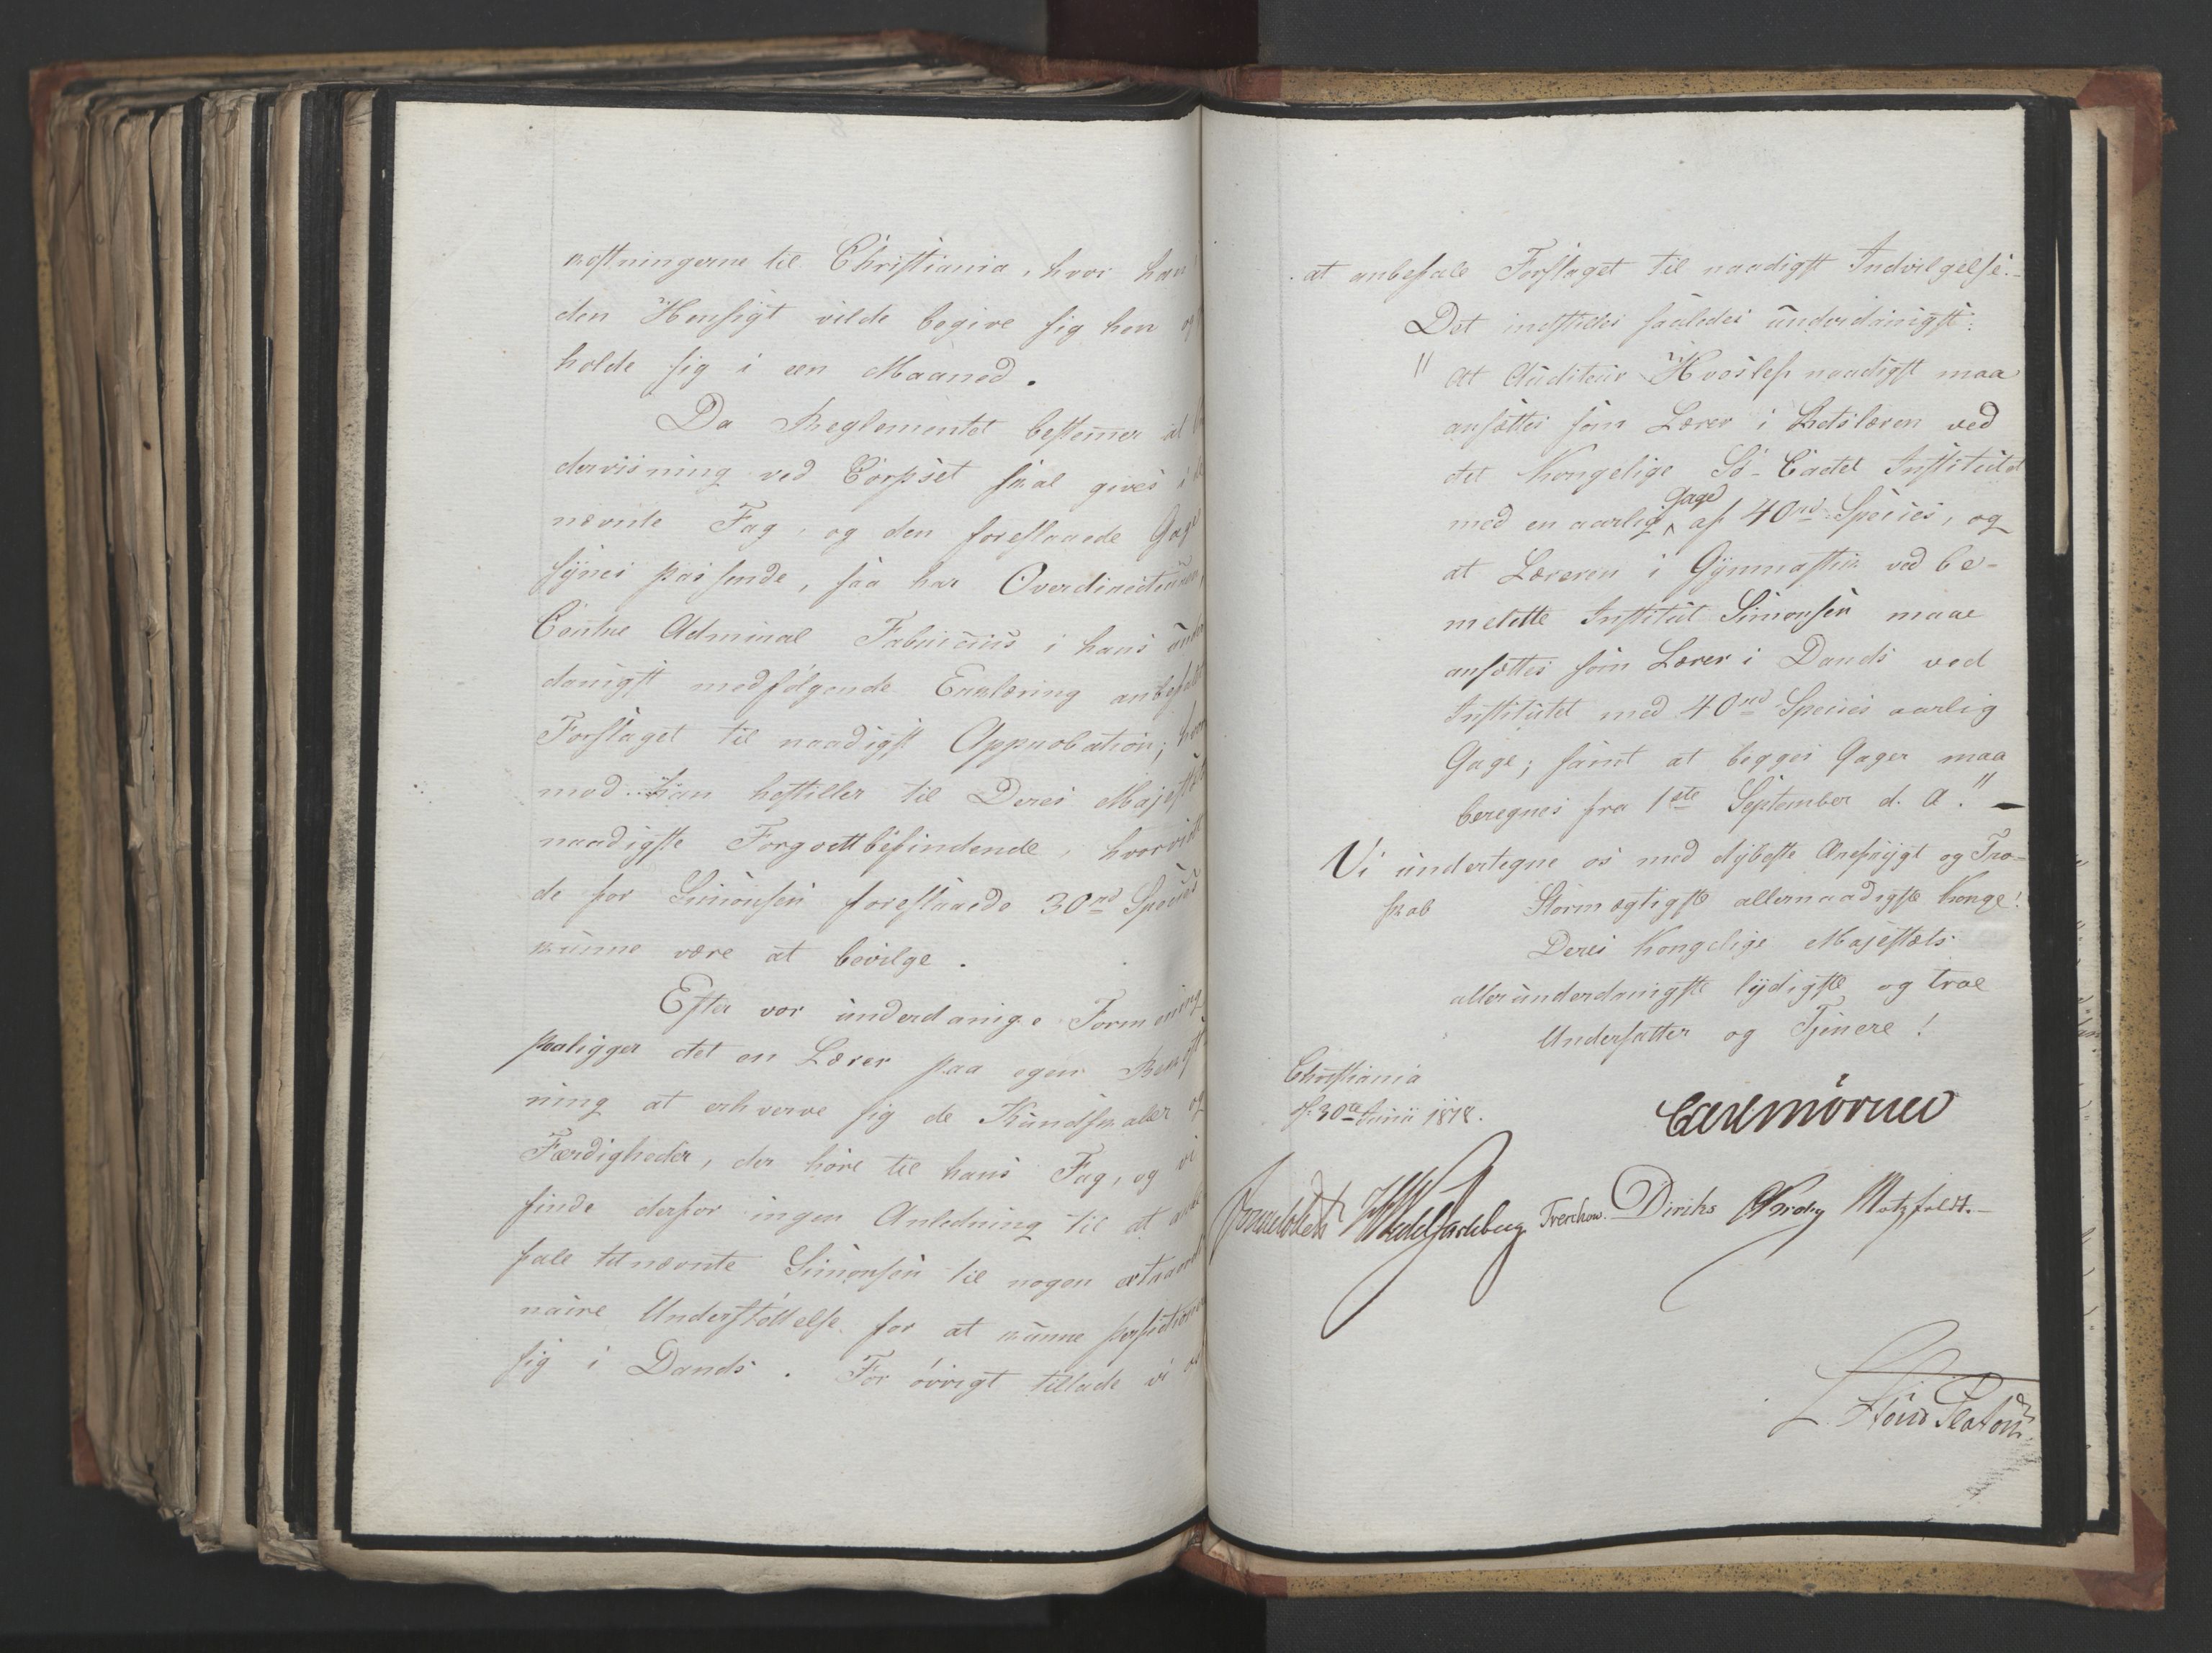 kostningerne til Christiania, hvor han
den Hensigt vilde begive sig hen og
holde sig i een Maaned.
Da Reglementet bestemmer at
dervisning ved Corpset skal gives i
nævnte Fag, og den foreslaaede Gage
synes passende, saa har Overdirecteuren,
Contre Admiral Fabricius i hans under
danigst medfølgende Erklæring anbefalet
Forslaget til naadigst Approbation; hvor
mod han hestiller til Deres Majestæts
naadigste Forgodtbefindende, hvorvidt
de for Simonsen foreslaaede 30nd Species
kunne være at bevilge.
Efter vor underdanige Formening
paaligger det en Lærer paa egen Bekost
ning at erhverve sig de Kundskaber og
Færdigheder, der høre til hans Fag, og vi
finde derfor ingen Anledning til at anbe
fale bemeldte Simonsen til nogen extraordi
naire Understøttelse for at kunne perfectionere
sig i Dands. For øvrigt tillade vi os
at anbefale Forslaget til naadigst Indvilgelse.-
Det indstilles saaledes underdanigst:
"At Auditeur Hvoslef naadigst maa
ansættes som Lærer i Retslæren ved
det Kongelige Sø-Cadet Institutet
med en aarlig Gage af 40nd Species, og
at Læreren i Gymnastik ved be-
meldte Institut Simonsen maae
ansættes som Lærer i Dands ved
Institutet med 40nd Species aarlig
Gage; samt at begges Gager maa
beregnes fra 1ste September d. A." -
Vi undertegne os med dybeste Ærefrygt og Tro-
skab Stormægtigste allernaadigste Konge!
Deres Kongelige Majestæts
allerunderdanigste lydigste og troe
Undersatter og Tjenere!
Christiania
d. 30te Junii 1818.
Carl Mörner
Sommerhielm HWedelJarlsberg Treschow. Diriks Motzfeldt.-
L. Stoud Platou